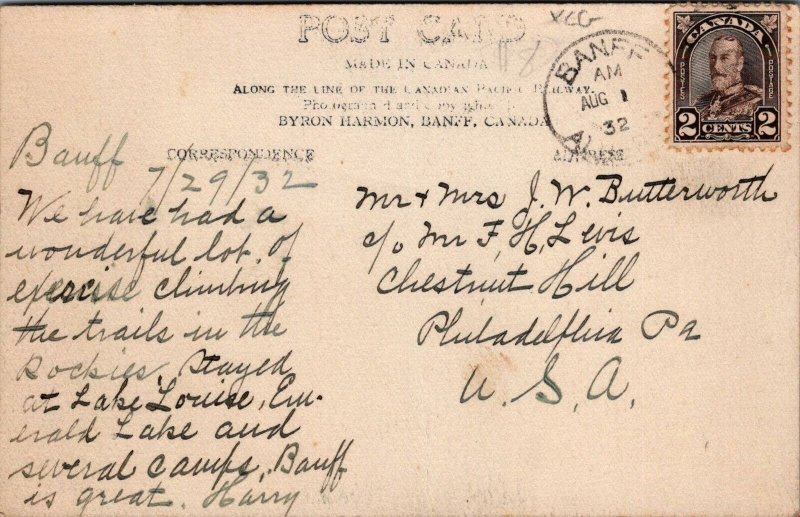 POST CARD
MADE IN CANADA
ALONG THE LINE OF THE CANADIAN PACIFIC RAILWAY.
Photographed and copyrighted
BYRON HARMON, BANFF, CANADA
CORRESPONDENCE
ADDRESS
BANFF
AM
AUG 1
32
CANADA
POSTES
POSTAGE
2 CENTS 2
Banff 7/29/32
We have had a
wonderful lot of
exercise climbing
the trails in the
Rockies. Stayed
at Lake Louise, Em-
erald Lake and
several camps. Banff
is great. Harry
Mr + Mrs J. W. Butterworth
c/o Mr F. H. Levis
Chestnut Hill
Philadelphia Pa
U. S. A.